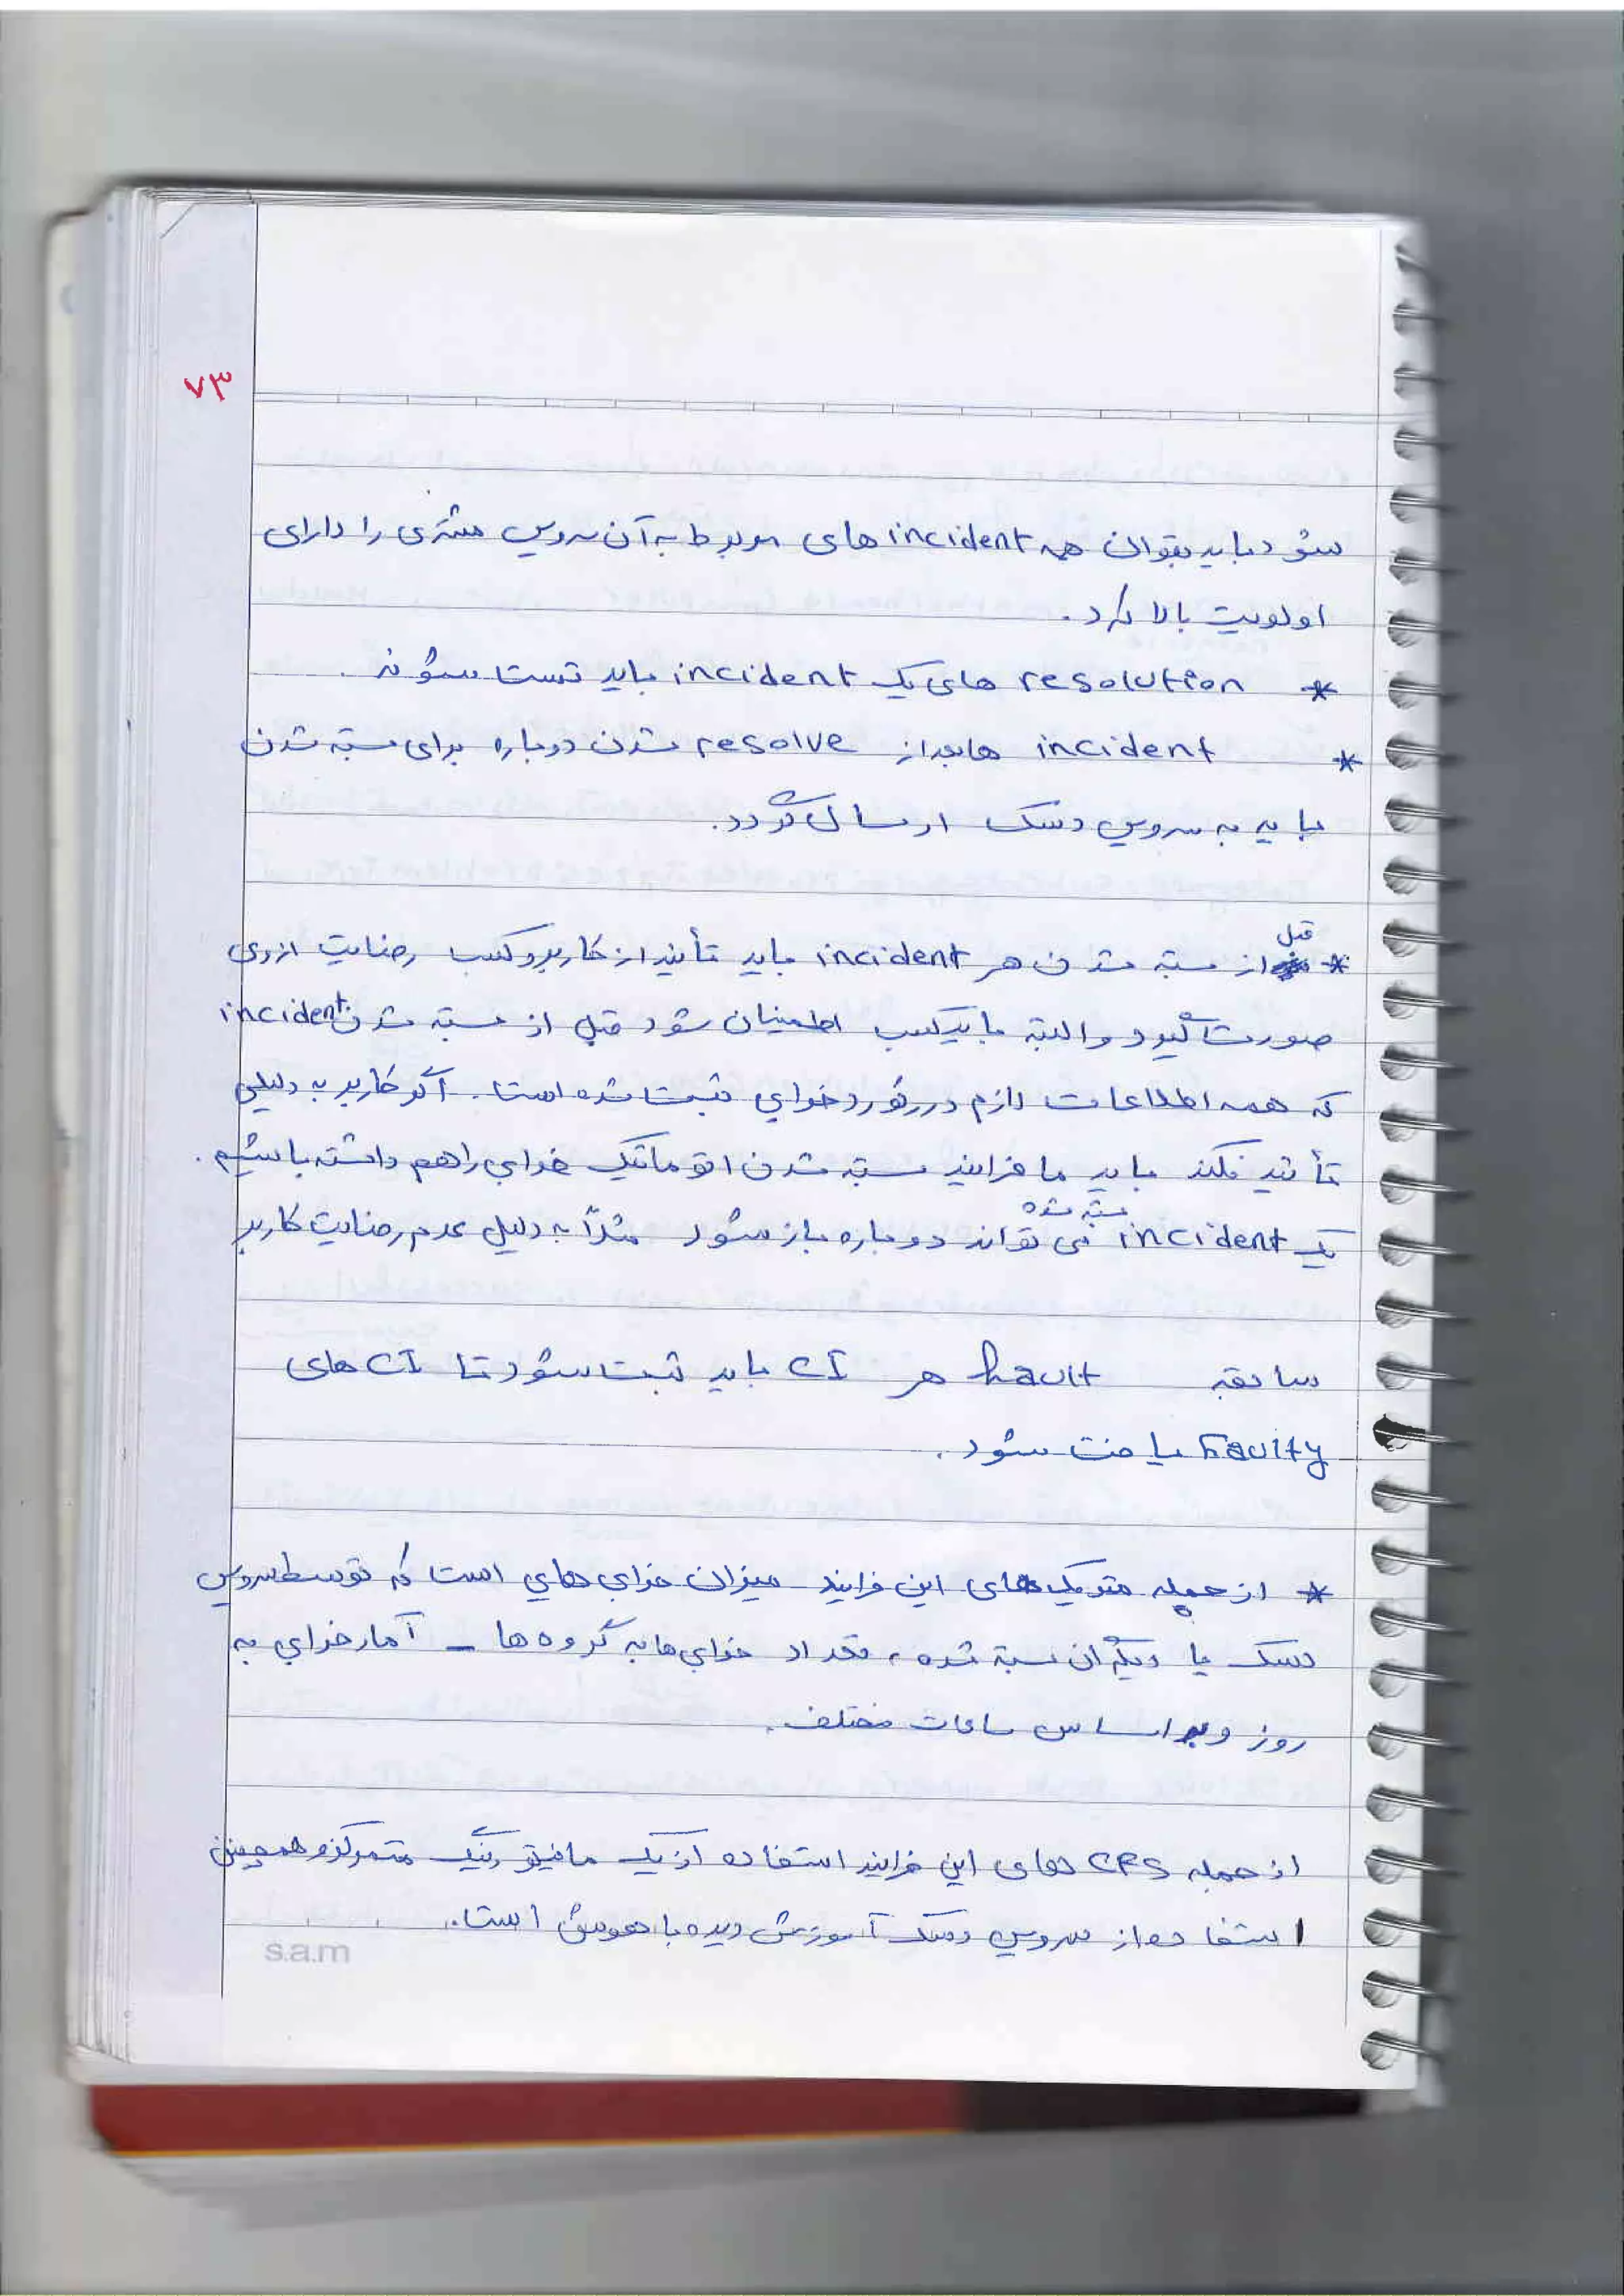 ۷۳
شود باید بتوان همه incident های مربوط به آن سرویس مشتری را دارای
اولویت بالا کرد.
* resolution های یک incident باید تست شوند.
* incident ها بعد از resolve شدن دوباره برای بسته شدن
باید به سرویس دسک ارسال گردد.
* قبل از بسته شدن هر incident باید تأئید از کاربر و کسب رضایت از وی
صورت گیرد و البته باید کسب اطمینان شود قبل از بسته شدن incident
که همه اطلاعات لازم در رکورد خرابي ثبت شده است. اگر کاربر به دلیلی
تأئید نکند باید ما فرایند بسته شدن اتوماتیک خرابي را هم داشته باشیم.
یک incident بسته شده می تواند دوباره باز شود مثلاً به دلیل عدم رضایت کاربر
سابقه fault هر CI باید ثبت شود تا CI های
faulty یافت شود.
* از جمله متریک های این فرایند میزان خرابی هایي است که توسط سرویس
دسک یا دیگران بسته شده، تعداد خرابي ها به گروه ها - آمار خرابي به
روز و بر اساس ساعات مختلف.
از جمله CFS های این فرایند استفاده از یک مانیتورینگ متمرکز و همچنین
استفاده از سرویس دسک آموزش دیده با هوش است.
s.a.m